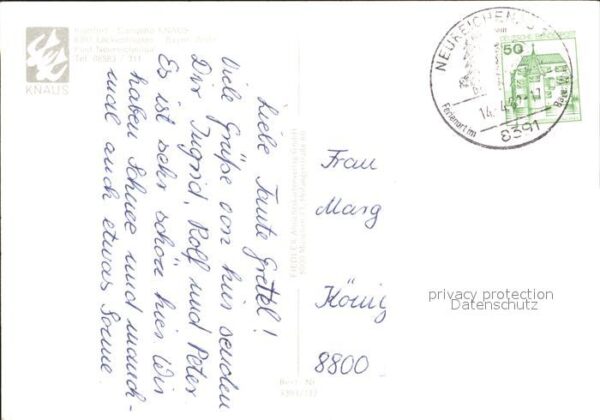 KNAUS
Komfort - Camping KNAUS
Post Neureichenau
Tel. 08583 / 311
Liebe Tante Grettel!
Viele Grüße von hier senden
Dir Ingrid, Rolf und Peter.
Es ist sehr schön hier. Wir
haben Schnee und manch-
mal auch etwas Sonne.
Best. Nr.
NEUREICHENAU
Ferienort im
Bayer. Wald
14.
8391
50
DEUTSCHE BUNDESPOST
Frau
Marg
König
8800
privacy protection
Datenschutz